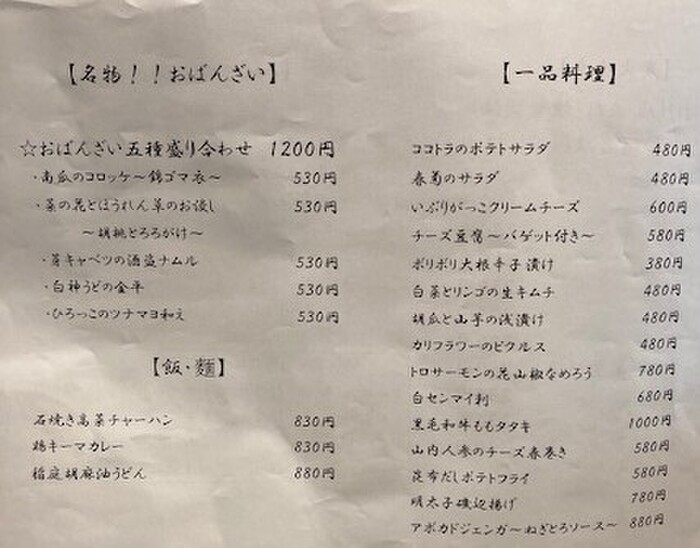 【名物！！おばんざい】
☆おばんざい五種盛り合わせ 1200円
・南瓜のコロッケ～錦ゴマ衣～ 530円
・菜の花とほうれん草のお浸し 530円
～胡桃とろろがけ～
・芽キャベツの酒盗ナムル 530円
・白神うどの金平 530円
・ひろっこのツナマヨ和え 530円
【飯・麺】
石焼き高菜チャーハン 830円
鶏キーマカレー 830円
稲庭胡麻油うどん 880円
【一品料理】
ココトラのポテトサラダ 480円
春菊のサラダ 480円
いぶりがっこクリームチーズ 600円
チーズ豆腐～バゲット付き～ 580円
ポリポリ大根辛子漬け 380円
白菜とリンゴの生キムチ 480円
胡瓜と山芋の浅漬け 480円
カリフラワーのピクルス 480円
トロサーモンの花山椒なめろう 780円
白センマイ刺 680円
黒毛和牛ももタタキ 1000円
山内人参のチーズ春巻き 580円
昆布だしポテトフライ 580円
明太子磯辺揚げ 780円
アボカドジェンガ～ねぎとろソース～ 880円